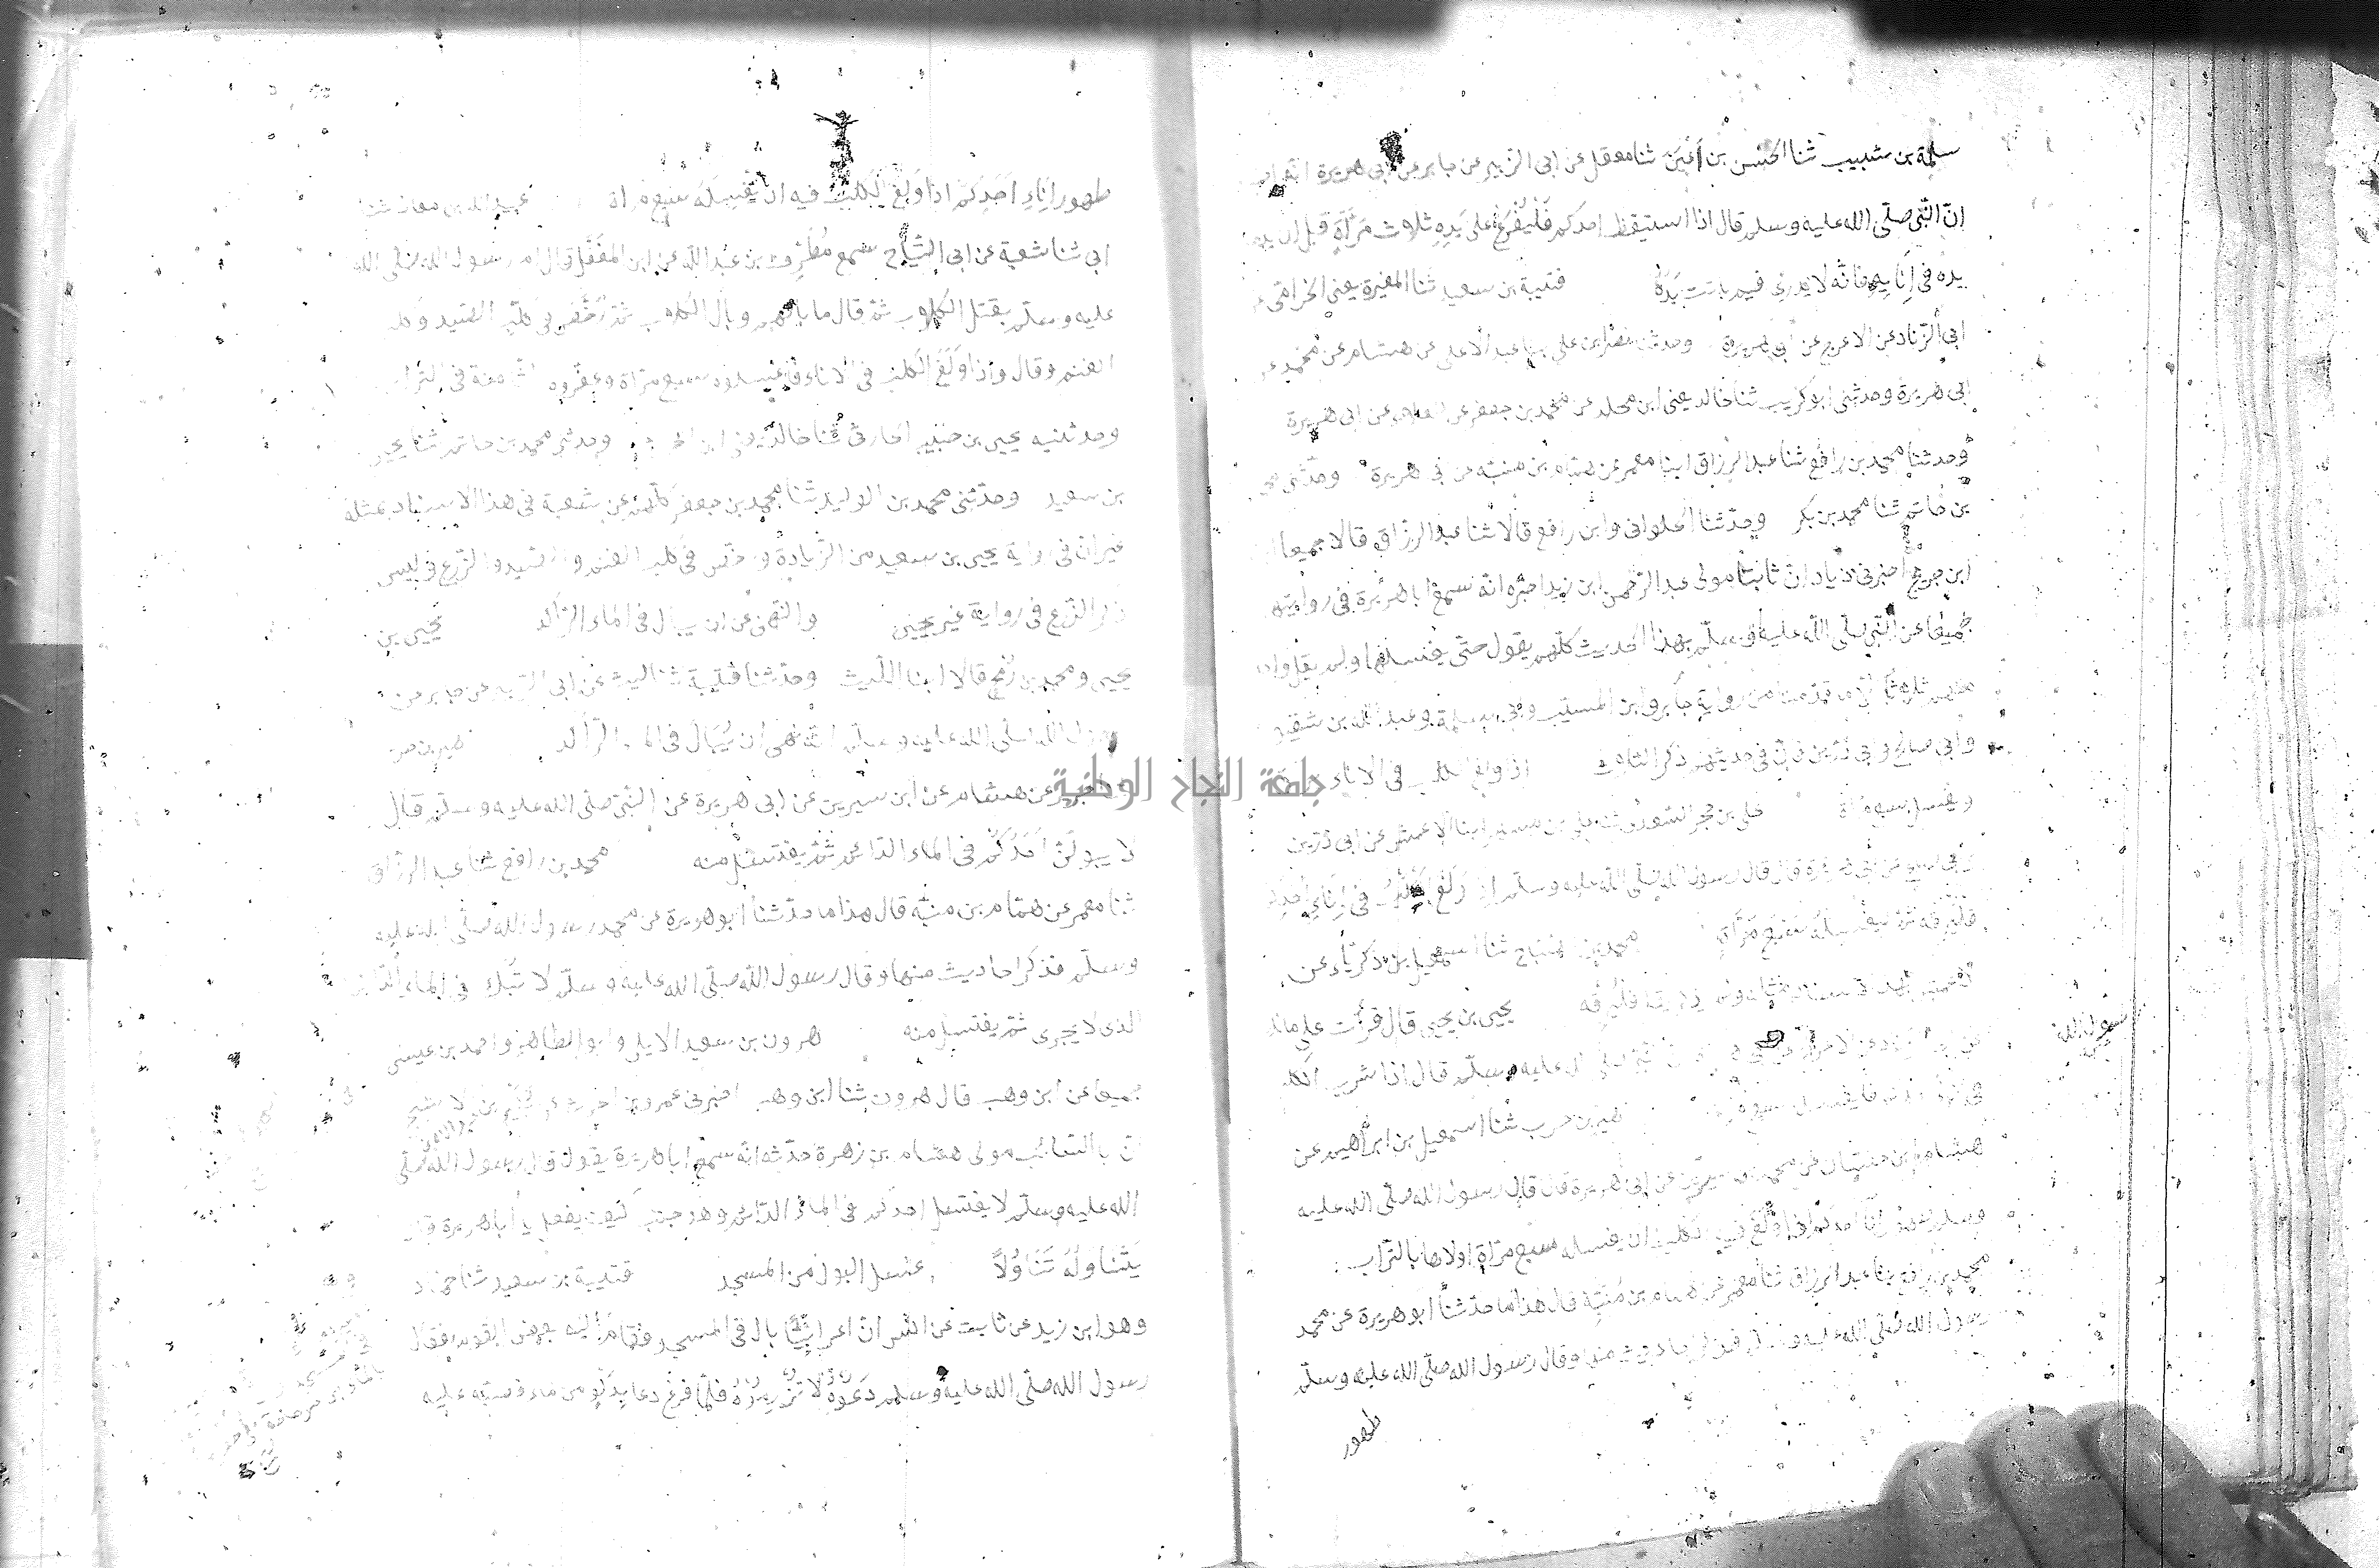 سلمة بن شبيب ثنا الحسن بن أعين ثنا معقل عن ابى الزبير عن جابر عن ابى هريرة انه
انّ النّبى صلّى الله عليه وسلم قال اذا استيقظ احدكم فليفرغ على يده ثلاث مرّات قبل ان
يده فى إنايه فانّه لا يدرى فيم باتت يده قتيبة بن سعيد ثنا المغيرة يعنى الحزامى
ابى الزّناد عن الاعرج عن ابى هريرة وحدثنا نصر بن على ثنا عبد الأعلى عن هشام عن محمد عن
ابى هريرة وحدثنى ابو كريب ثنا خالد يعنى ابن مخلد عن محمد بن جعفر عن العلاء عن ابى هريرة
وحدثنا محمد بن رافع ثنا عبد الرزاق ابنا معمر عن همّام بن منبّه عن ابى هريرة وحدّثنى
بن حاتم ثنا محمد بن بكر وحدّثنا الحلوانى وابن رافع قالا ثنا عبد الرزّاق قالا جميعا
ابن جريج اخبرنى زياد انّ ثابتا مولى عبد الرّحمن ابن زيد اخبره انّه سمع ابا هريرة فى روايتهم
جميعا عن النّبى صلّى الله عليه وسلّم بهذا الحديث كلّهم يقول حتّى يغسلها ولم يقل واحد
منهم ثلاثا الّا ما قدّمنا من رواية جابر وابن المسيّب وابى سلمة وعبد الله بن شقيق
وابى صالح وابى رزين فانّ فى حديثهم ذكر الثلاث اذا ولغ الكلب فى الاناء
ويغسل سبع مرّات على بن حجر السّعدى ثنا على بن مسهر ابنا الاعمش عن ابى رزين
وابى صالح عن ابى هريرة قال قال رسول الله صلّى الله عليه وسلّم اذا ولغ الكلب فى إناء احدكم
فليرقه ثمّ ليغسله سبع مرّات محمد بن الصّباح ثنا اسمعيل بن زكريّاء عن
الاعمش بهذا الاسناد مثله ولم يقل فليرقه يحيى بن يحيى قال قرأت على مالك
عن ابى الزناد عن الاعرج عن ابى هريرة انّ رسول الله صلى الله عليه وسلّم قال اذا شرب الكلب
فى اناء احدكم فليغسله سبع مرّات زهير بن حرب ثنا اسمعيل بن ابراهيم عن
هشام ابن حسّان عن محمد بن سيرين عن ابى هريرة قال قال رسول الله صلّى الله عليه
وسلم طهور إناء احدكم اذا ولغ فيه الكلب ان يغسله سبع مرّات اولاها بالتّراب
محمد بن رافع ثنا عبد الرزاق ثنا معمر عن همّام بن منبّه قال هذا ما حدّثنا أبو هريرة عن محمد
رسول الله صلّى الله عليه وسلّم فذكر احاديث منها وقال رسول الله صلّى الله عليه وسلّم
طهور
رسول الله
طهور إناء احدكم اذا ولغ الكلب فيه ان يغسله سبع مرات عبيد الله بن معاذ ثنا
ابى ثنا شعبة عن ابى التّيّاح سمع مطرّف بن عبد الله عن ابن المغفّل قال امر رسول الله صلّى الله
عليه وسلّم بقتل الكلاب ثمّ قال ما بالهم وبال الكلاب ثمّ رخّص فى كلب الصّيد وكلب
الغنم وقال واذا ولغ الكلب فى الاناء فاغسلوه سبع مرّات وعفّروه الثامنة فى التّراب
وحدثنيه يحيى بن حبيب الحارثى ثنا خالد يعنى ابن الحارث وحدثنى محمد بن حاتم ثنا يحيى
بن سعيد وحدّثنى محمد بن الوليد ثنا محمد بن جعفر كلّهم عن شعبة فى هذا الاسناد بمثله
غير انّ فى رواية يحيى بن سعيد من الزّيادة ورخّص فى كلب الغنم والصّيد والزّرع وليس
ذكر الزّرع فى رواية غير يحيى والنّهى عن ان يبال فى الماء الرّاكد يحيى بن
يحيى ومحمد بن رمح قالا ابنا اللّيث وحدّثنا قتيبة ثنا ليث عن ابى الزّبير عن جابر عن
رسول الله صلّى الله عليه وسلّم انّه نهى ان يبال فى الماء الرّاكد زهير بن حرب
ثنا جرير عن هشام عن ابن سيرين عن ابى هريرة عن النّبىّ صلّى الله عليه وسلّم قال
لا يبولنّ احدكم فى الماء الدّائم ثمّ يغتسل منه محمد بن رافع ثنا عبد الرزّاق
ثنا معمر عن همّام بن منبّه قال هذا ما حدّثنا ابو هريرة عن محمد رسول الله صلّى الله عليه
وسلّم فذكر احاديث منها وقال رسول الله صلّى الله عليه وسلّم لا تبل فى الماء الدّائم
الذى لا يجرى ثمّ يغتسل منه هرون بن سعيد الايلى وابو الطاهر واحمد بن عيسى
جميعا عن ابن وهب قال هرون ثنا ابن وهب اخبرنى عمرو بن الحرث عن بكير بن الاشج
انّ ابا السّائب مولى هشام بن زهرة حدّثه انّه سمع ابا هريرة يقول قال رسول الله صلّى
الله عليه وسلّم لا يغتسل احدكم فى الماء الدّائم وهو جنب كيف يفعل يا أبا هريرة قال
يتناوله تناولًا غسل البول من المسجد قتيبة بن سعيد ثنا حمّاد
وهو ابن زيد عن ثابت عن انس انّ اعرابيّا بال فى المسجد فقام اليه بعض القوم فقال
رسول الله صلّى الله عليه وسلم دعوه لا تزرموه فلمّا فرغ دعا بدلو من ماء فصبّه عليه
جامعة النجاح الوطنية